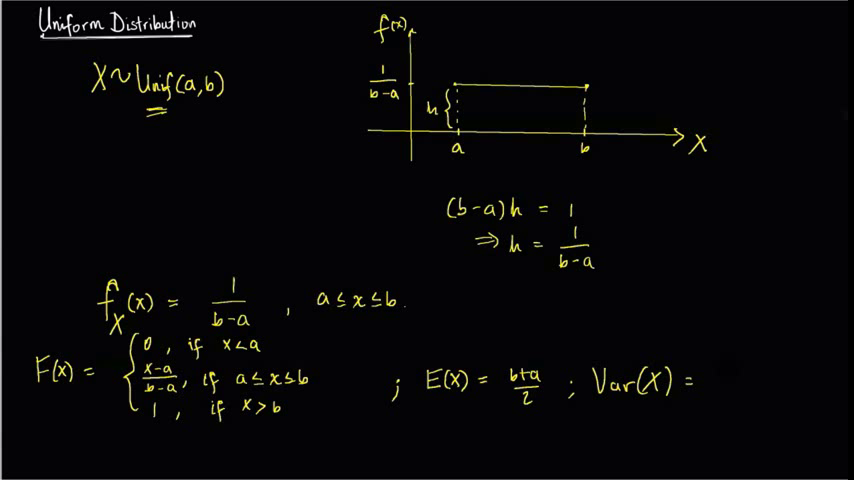 Uniform Distribution
X ~ Unif(a,b)
f(x)
1/(b-a)
h {
a b X
(b-a)h = 1
⇒ h = 1/(b-a)
f_X(x) = 1/(b-a) , a ≤ x ≤ b.
F(x) = { 0 , if x<a
(x-a)/(b-a), if a ≤ x ≤ b
1 , if x > b
; E(X) = (b+a)/2 ; Var(X) =